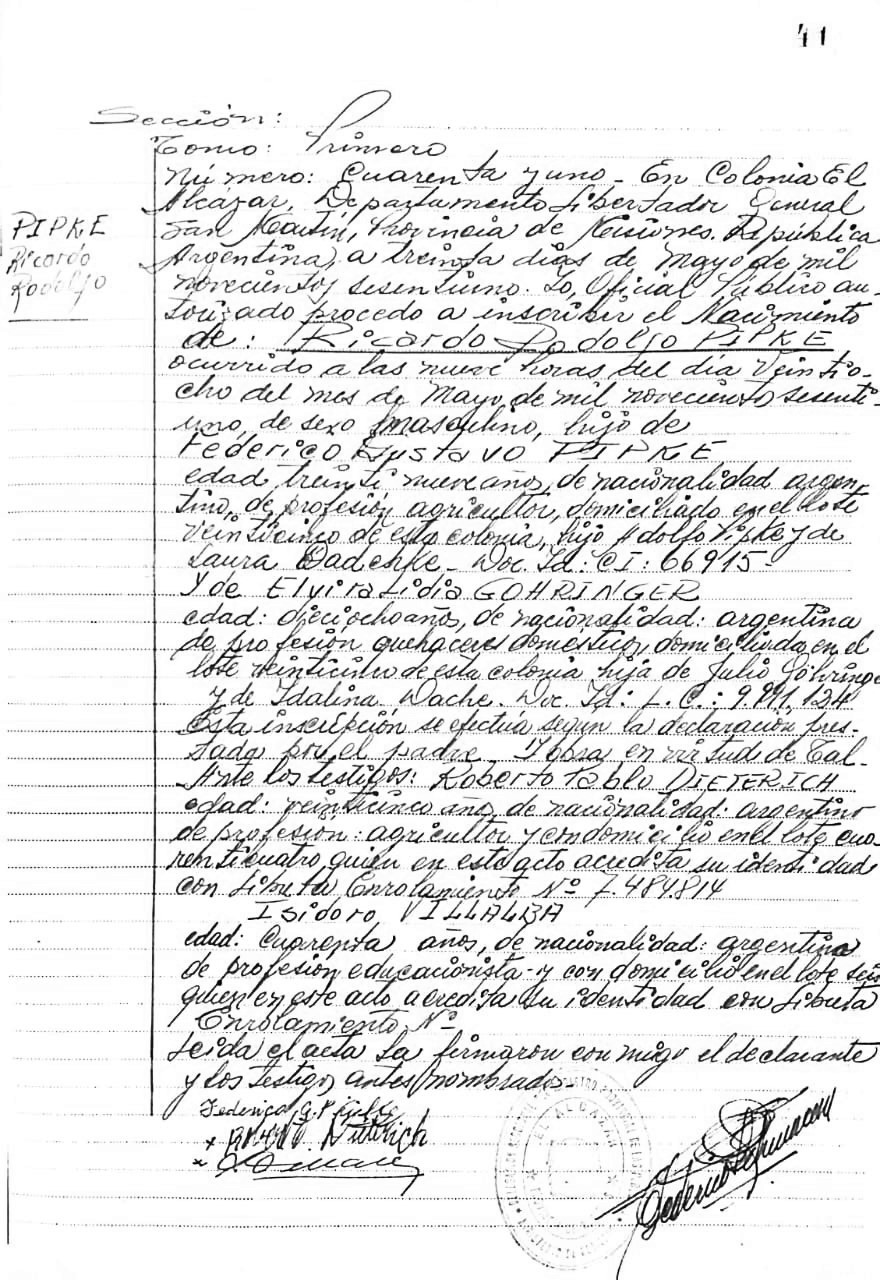 41
Sección:
Tomo: Primero
Número: Cuarenta y uno - En Colonia El
Alcázar, Departamento Libertador General
San Martín, Provincia de Misiones. República
PIPKE
Ricardo
Rodolfo
Argentina, a treinta días de Mayo de mil
novecientos sesentiuno. Yo, Oficial Público au-
torizado procedo a inscribir el Nacimiento
de: Ricardo Rodolfo PIPKE
ocurrido a las nueve horas, del día Veintio-
cho del mes de Mayo, de mil novecientos sesenti-
uno, de sexo masculino, hijo de
Federico Gustavo PIPKE
edad, treinti nueve años, de nacionalidad argen-
tino, de profesión agricultor, domiciliado en el lote
veinticinco de esta colonia, hijo Adolfo Pipke y de
Laura - Doc. Id: CI: 66915-
Y de Elvira Lidia GOHRINGER
edad: dieciocho años, de nacionalidad: argentina
de profesión quehaceres domésticos, domiciliada en el
lote veinticinco de esta colonia hija de Julio Göhringe
y de Idalina Wache. Doc. Id: L.C.: 9.991.124
Esta inscripción se efectúa segun la declaración pres-
tada por el padre. Y obra en virtud de tal-
Ante los testigos: Roberto Pablo DIETERICH
edad: veinticinco años de nacionalidad: argentino
de profesión: agricultor y con domicilio en el lote cua-
renticuatro, quien en este acto acredita su identidad
con Libreta Enrolamiento Nº 7.484.814
Isidoro, VILLALBA
edad: Cuarenta años, de nacionalidad: argentina
de profesión educacionista - y con domicilio en el lote seis
quien en este acto acredita su identidad con Libreta
Enrolamiento Nº
Leida el acta la firmaron conmigo el declarante
y los testigos antes nombrados-
Federico G. Pipke
EL ALCAZAR